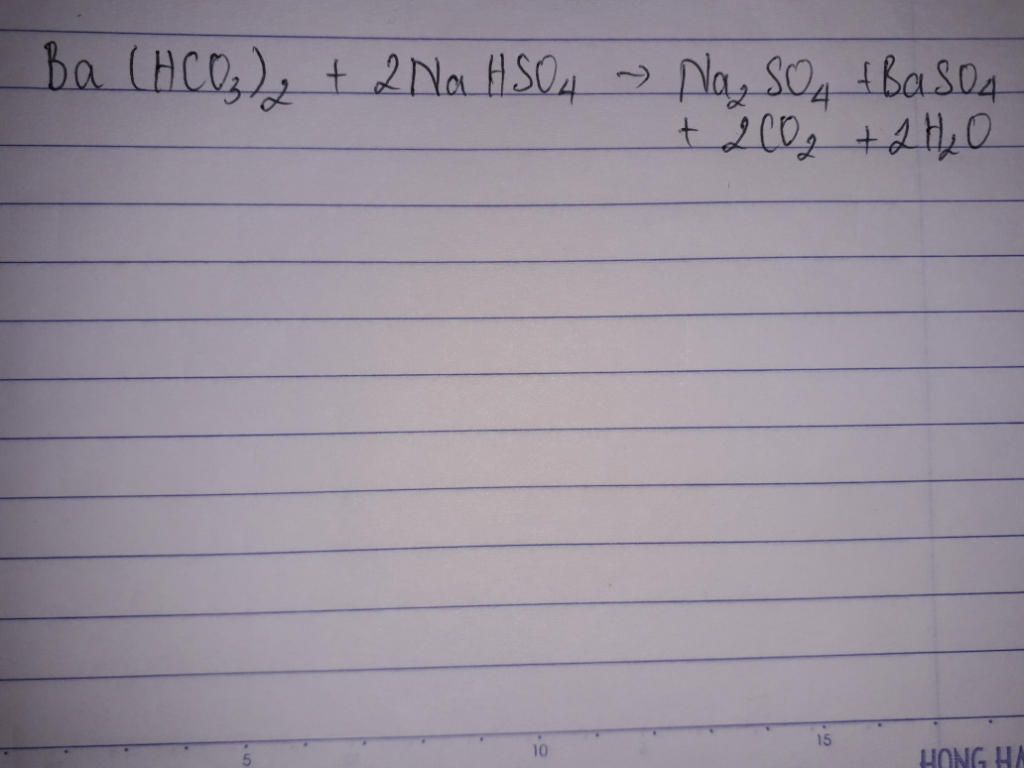 Ba(HCO₃)₂ + 2NaHSO₄ → Na₂SO₄ + BaSO₄
+ 2CO₂ + 2H₂O
5 10 15
HONG HA